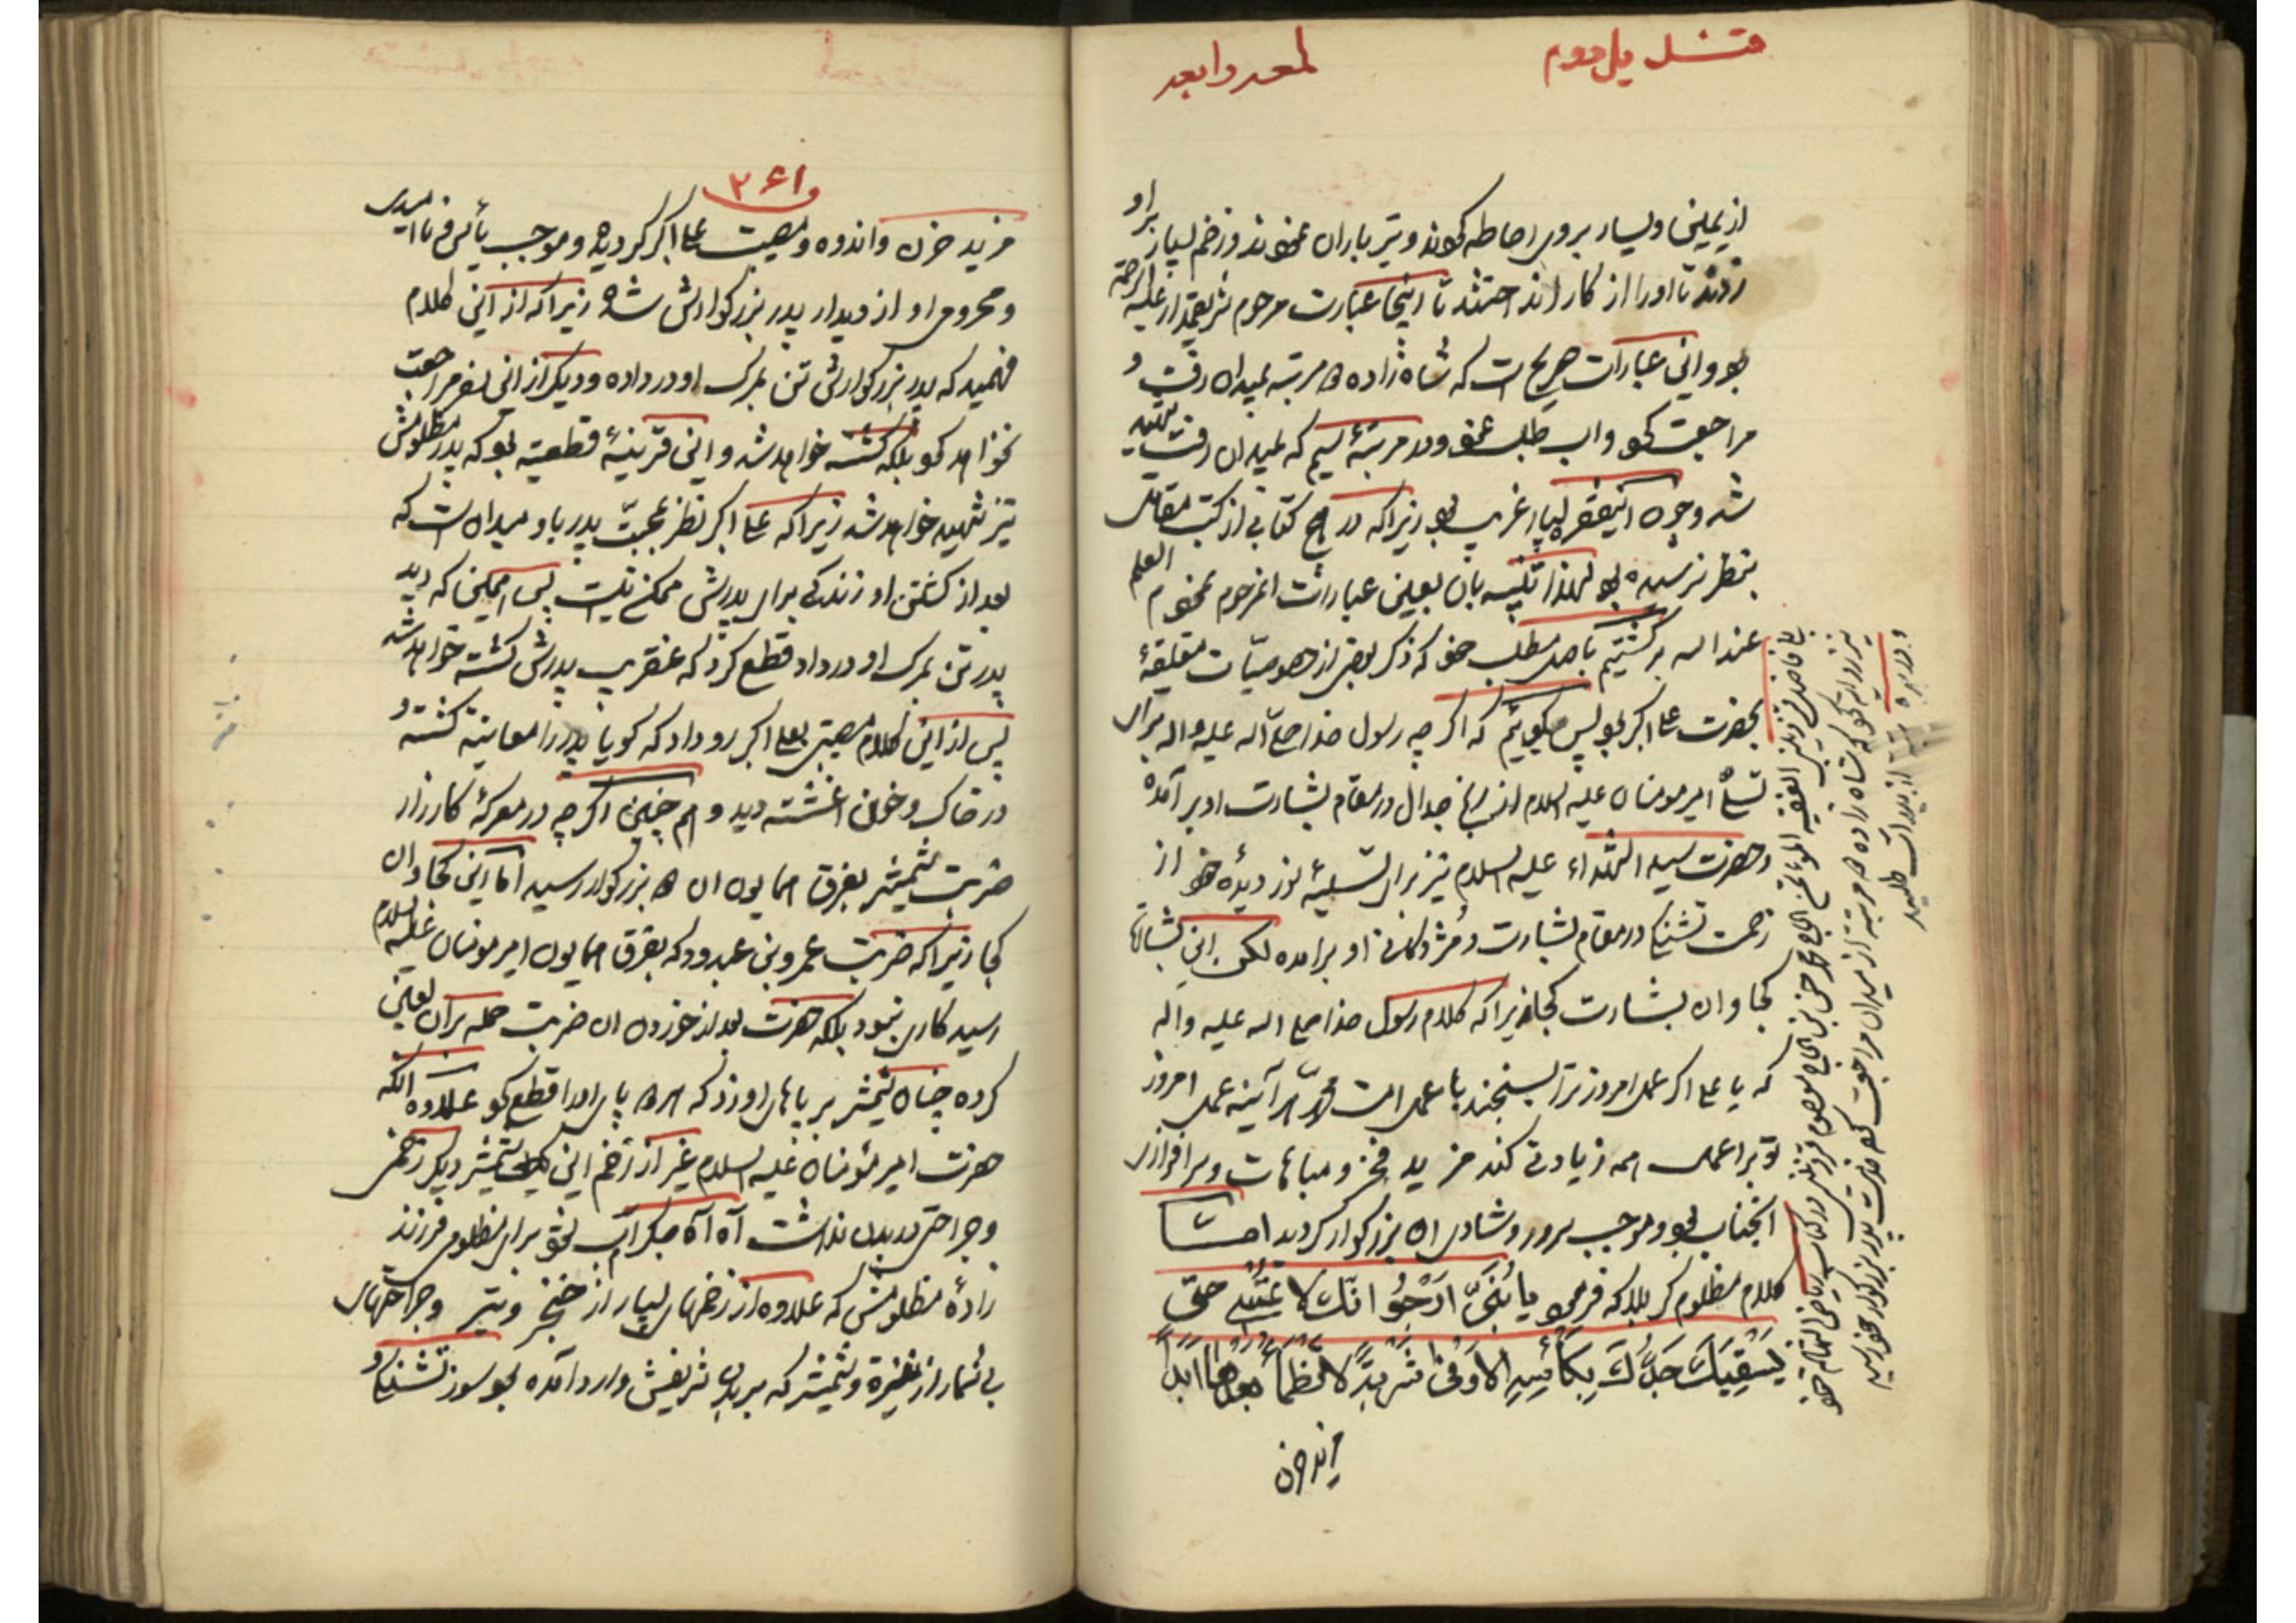 قندیل دوم
لمعه رابعه
از یمین و یسار بر وی احاطه کردند و تیر باران نمودند و زخم بسیار بر او
زدند تا او را از کار انداختند تا اینجا عبارت مرحوم شریعتمدار علیه الرحمة
بود و این عبارات صریح است که شاه زاده ۳ مرتبه بمیدان رفت و
مراجعت کرد و آب طلب نمود و در مرتبهٔ سیم که بمیدان رفت شهید
شد و چون این فقره بسیار غریب بود زیرا که در هیچ کتابی از کتب مقاتل
بنظر نرسیده بود لهذا بعین عبارات آنمرحوم نمودم العلم
عند الله برگشتیم باصل مطلب خود که ذکر بعضی از خصوصیات متعلقهٔ
بحضرت علی اکبر بود پس میگویم که اگر چه رسول خدا صلی الله علیه و اله برای
تسلی امیر مومنان علیه السلام در مقام بشارت او بر آمده
و حضرت سید الشهداء علیه السلام نیز برای تسلیهٔ نور دیدهٔ خود از
زحمت تشنگی در مقام بشارت و مژدگانی او برامده لکن این بشارت
کجا و ان بشارت کجا زیرا که کلام رسول خدا صلی الله علیه و اله
که یا علی اگر عمل امروز ترا بسنجند با عمل امت محمد هر آینه عمل امروز
تو بر اعمال همه زیادتی کند مزید فخر و مباهات و سرافرازی
انجناب بود و موجب سرور و شادی ان بزرگوار گردید امّا
کلام مظلوم کربلا که فرمود یا بُنَیَّ ارْجِعْ انّک لا تمسی حتّی
یَسْقِیَکَ جَدُّکَ بِکَأْسِهِ الاَوْفی شَرْبَةً لا تَظْمَأُ بعدها ابدا
مزید حزن
۲۶۱
مزید حزن و اندوه و مصیبت علی اکبر گردیده و موجب یأس و نا امیدی
و محرومی او از دیدار پدر بزرگوارش شد زیرا که از این کلام
فهمید که پدر بزرگوارش تن بمرک او در داده و دیگر از این سفر مراجعت
نخواهد کرد بلکه کشته خواهد شد و این قرینهٔ قطعیه بود که پدر مظلومش
نیز شهید خواهد شد زیرا که علی اکبر نظر بمحبّت پدر باو میدانست که
بعد از کشتن او زندگی برای پدرش ممکن نیست پس همینکه دید
پدر تن بمرک او در داد قطع کرد که عنقریب پدرش کشته خواهد شد
پس از این کلام مصیبتی بعلی اکبر رو داد که گویا پدر را معاینه کشته و
در خاک و خون اغشته دید و هم چنین اگر چه در معرکهٔ کارزار
ضربت شمشیر بفرق همایون ان ۲ بزرگوار رسید امّا این کجا و ان
کجا زیرا که ضربت عمرو بن عبدود که بفرق همایون امیر مومنان علیه السلام
رسید کاری نبود بلکه حضرت بعد از خوردن ان ضربت حمله بران لعین
کرده چنان شمشیر بر پاهای او زد که هر ۲ پای او را قطع کرد علاوه آنکه
حضرت امیر مؤمنان علیه السلام غیر از زخم این یک شمشیر دیگر زخمی
و جراحتی در بدن نداشت آه آه جگرم آب بشود برای مظلومی فرزند
زادهٔ مظلومش که علاوه از زخمهای بسیار از خنجر و تیر و جراحتهای
بی شمار از نیزه و شمشیر که بر بدن شریفش وارد آمده بود سوز تشنگی و